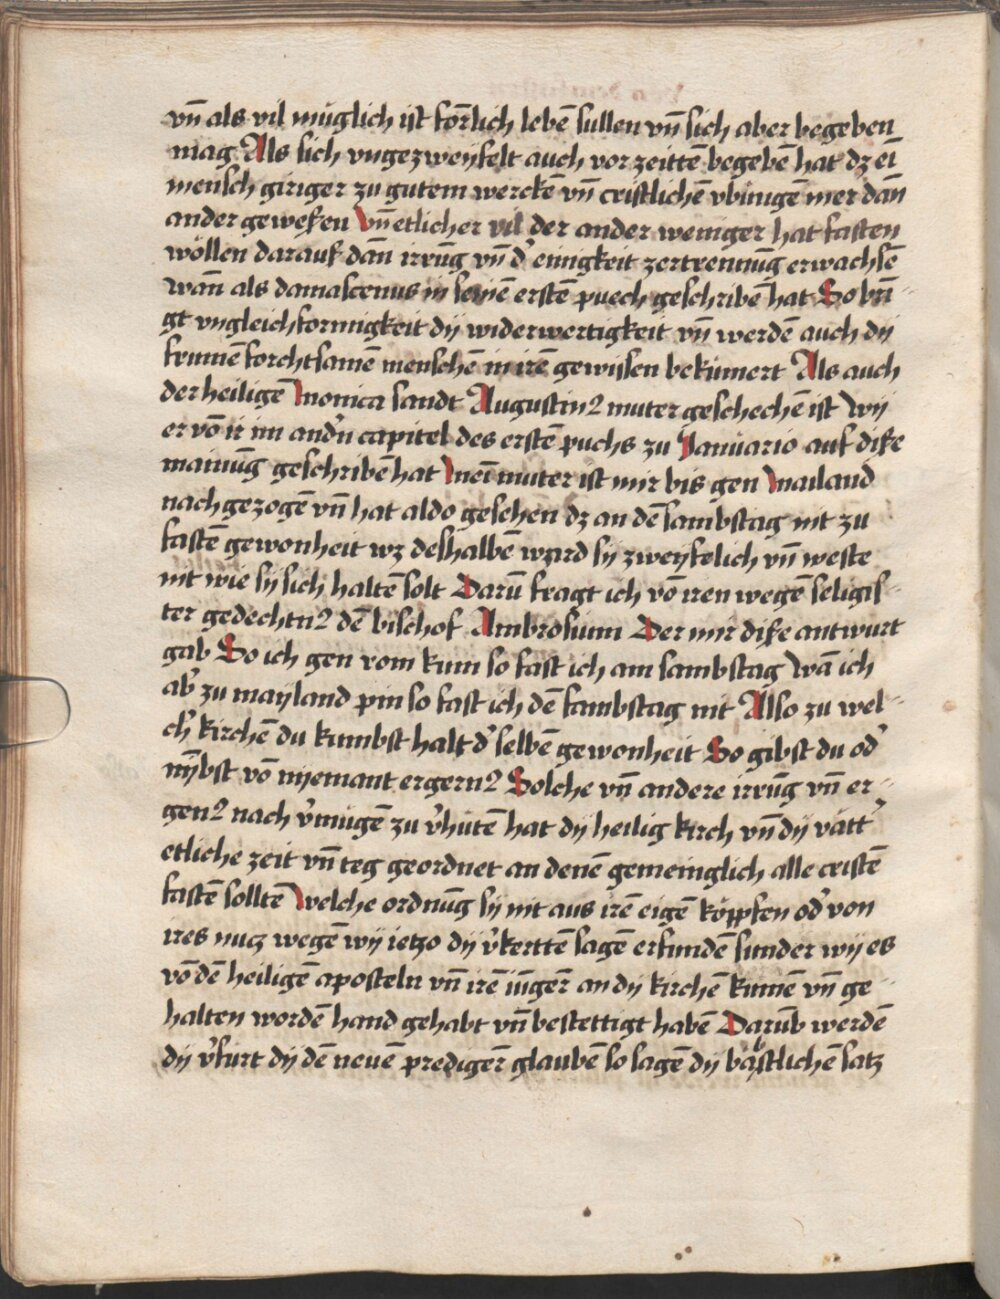 vn̄ als vil müglich ist förlich lebē sullen vn̄ sich aber begeben
mag Als sich vngezweyfelt auch vor zeittē begebē hat dz eī
mensch giriger zu gutem werckē vn̄ cristlichē vbingē mer dan̄
ander gewesen vn̄ etlicher vil der ander weniger hat fasten
wöllen darauf dan̄ irrūg vn̄ d' einigkeit zertrennūg erwachsē
wan̄ als damascenus in seinē erstē puech geschribē hat So brī-
gt vngleichformigkeit dij widerwertigkeit vn̄ werdē auch dij
frumē forchtsamē menschē in irē gewissen bekūmert Als auch
der heiligē Monica sandt Augustinꝰ muter geschechē ist Wij
er vō ir im and'n capitel des erstē puchs zu Januario auf dise
mainūg geschribē hat Meī muter ist mir bis gen Mailand
nach gezogē vn̄ hat aldo gesehen dz an dē sambstag nit zu
fastē gewonheit wz deshalbē ward sij zweyfelich vn̄ weste
nit wie sij sich haltē solt Darū fragt ich vō iren wegē seligis-
ter gedechtnꝰ dē bischof Ambrosium Der mir dise antwurt
gab So ich gen rom kum so fast ich am sambstag Wā ich
ab' zu mayland pin so fast ich dē sambstag nit Also zu wel-
ch' kirchē du kumbst halt d' selbē gewonheit So gibst du od'
nij̄bst vō nyemant ergernꝰ Solche vn̄ andere irrūg vn̄ er-
genꝰ nach v'mügē zu v'hütē hat dij heilig kirch vn̄ dij vätt'
etliche zeit vn̄ teg geordnet an denē gemeinglich alle cristē
fastē solltē Welche ordnūg sij nit aus irē eigē köpfen od' von
ires nucz wegē wij ietzo dij v'kerttē sagē erfundē sunder wij es
vō dē heiligē aposteln vn̄ irē iūger̄ an dij kirchē kumē vn̄ ge-
halten wordē hand gehabt vn̄ bestettigt habē Darūb werdē
dij v'furt dij dē neuē prediger̄ glaubē so sagē dij bäpstlichē satz